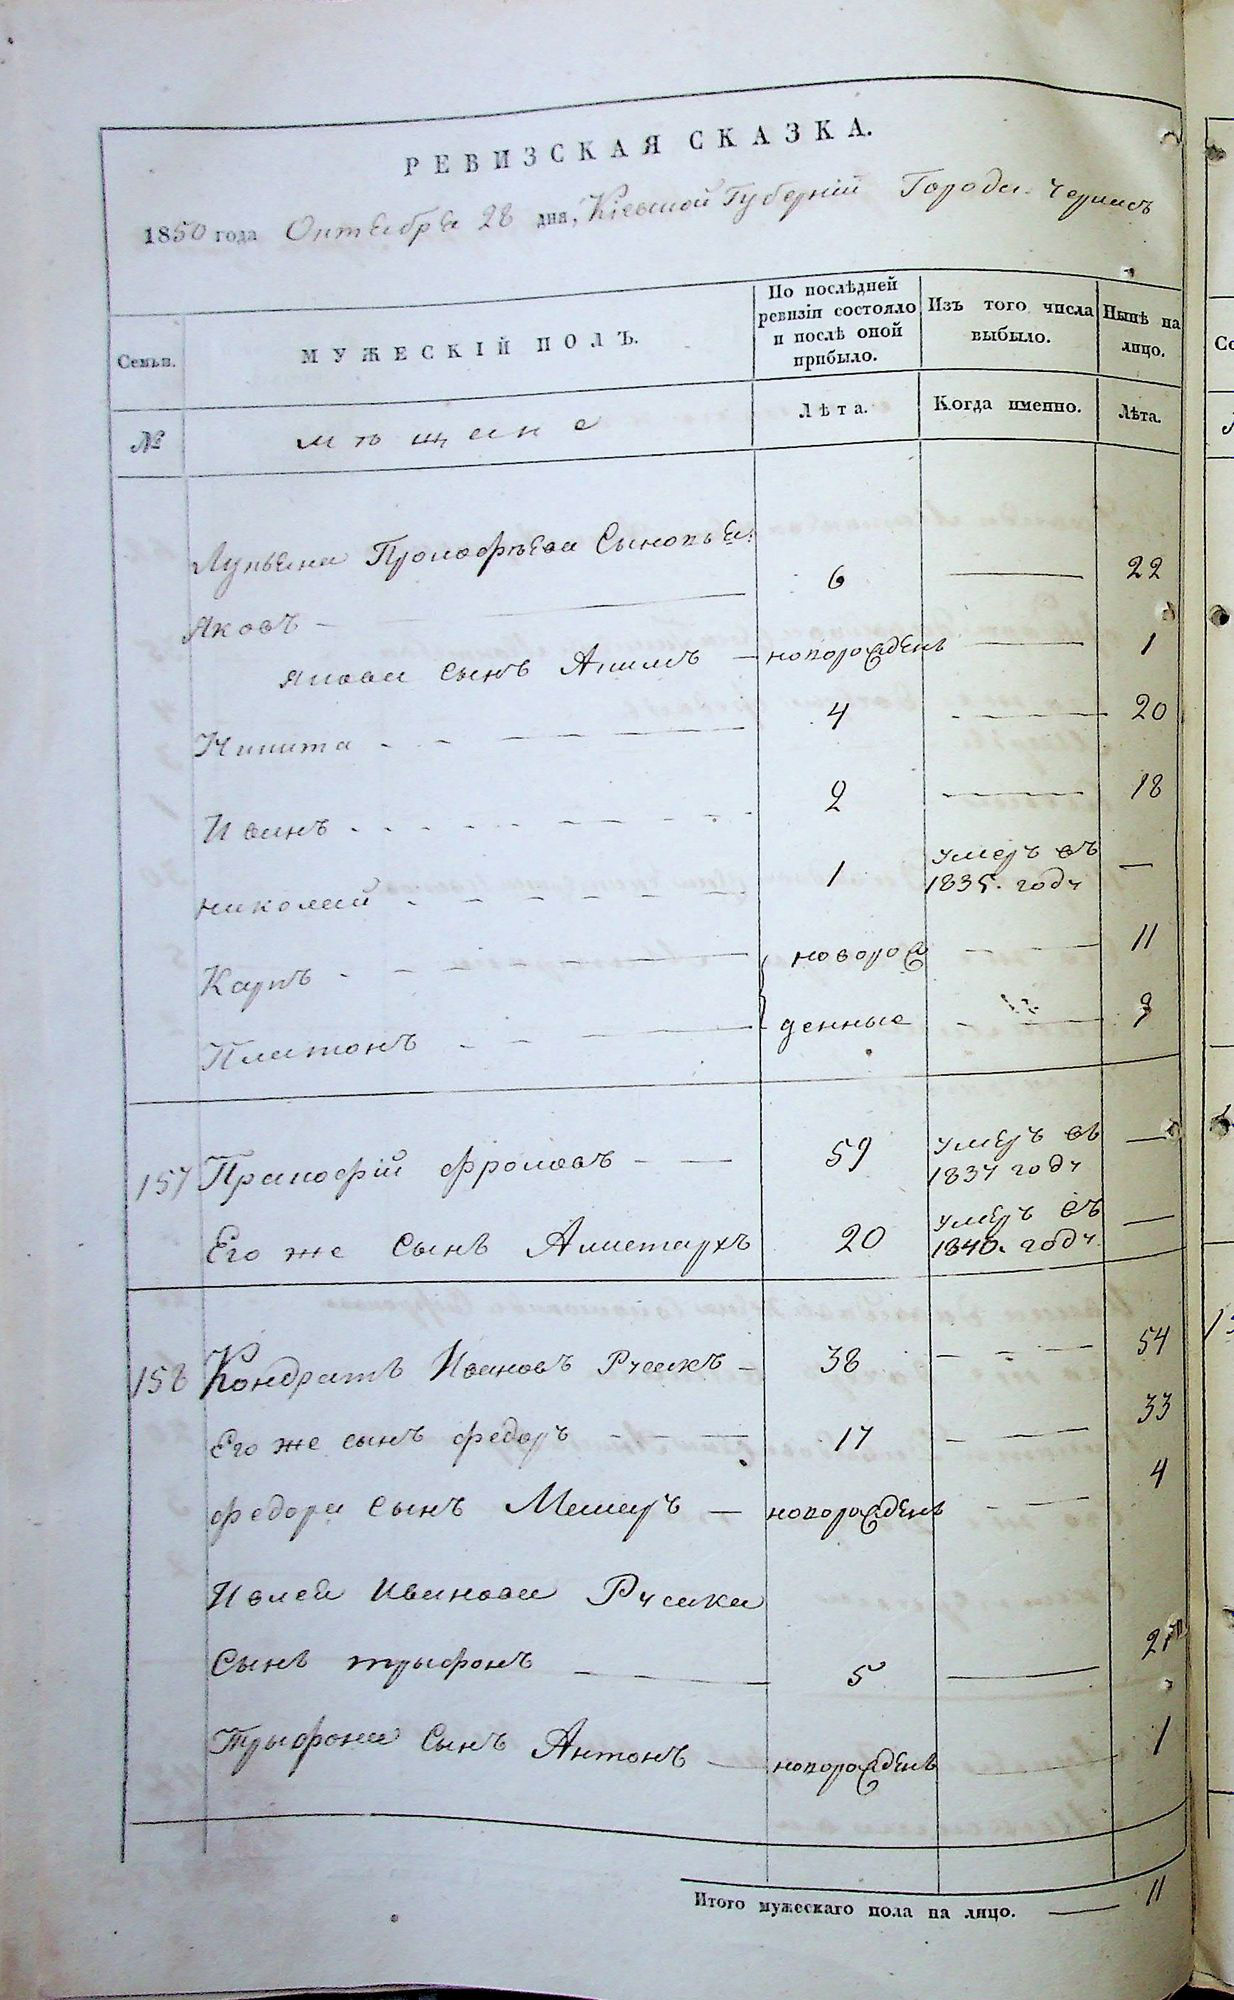 РЕВИЗСКАЯ СКАЗКА.
1850 года Октября 28 дня, Кіевской Губерніи Города Черкасъ
Семьи.
МУЖЕСКІЙ ПОЛЪ.
По послѣдней ревизіи состояло и послѣ оной прибыло.
Изъ того числа выбыло.
Нынѣ на лицо.
№
мѣщане
Лѣта.
Когда именно.
Лѣта.
Лукьяна Прокофьева Сыновья:
Яковъ 6 22
Якова сынъ Акимъ новорожденъ 1
Никита 4 20
Иванъ 2 18
Николай 1 умеръ въ 1835. году —
Карпъ новорож 11
Платонъ денные 9
157 Пракофій фроловъ 59 умеръ въ 1837 году —
Его же сынъ 20 умеръ въ 1840. году —
158 Кондратъ Ивановъ Русакъ 38 54
Его же сынъ федоръ 17 33
федора сынъ новорожденъ 4
Иванова Русака
сынъ трыфонъ 5 21
Трыфона сынъ Антонъ новорожденъ 1
Итого мужескаго пола на лицо. — 11